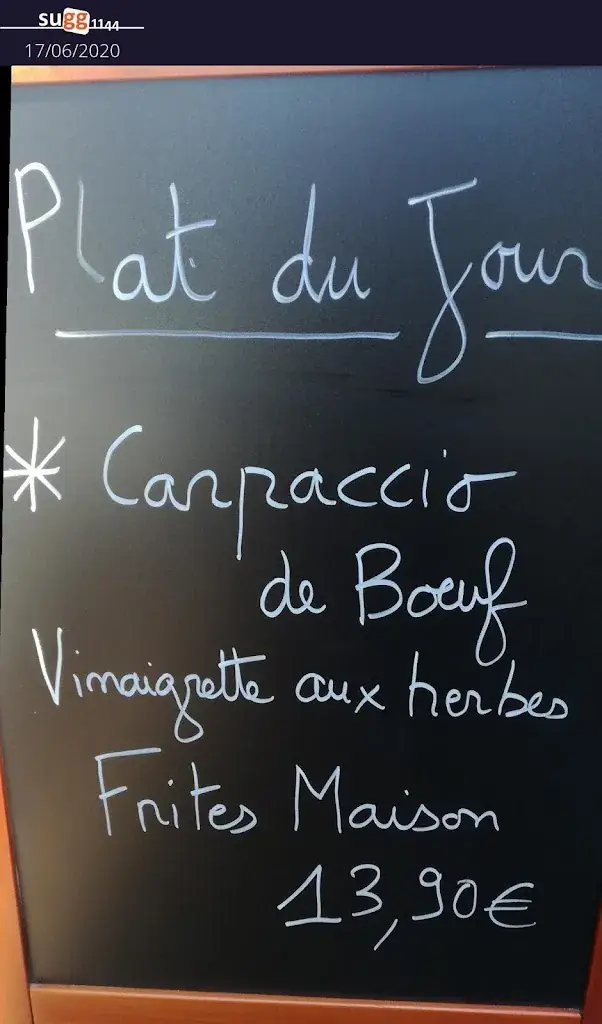 sugg1144
17/06/2020
Plat du Jour
* Carpaccio
de Bœuf
Vinaigrette aux herbes
Frites Maison
13,90€